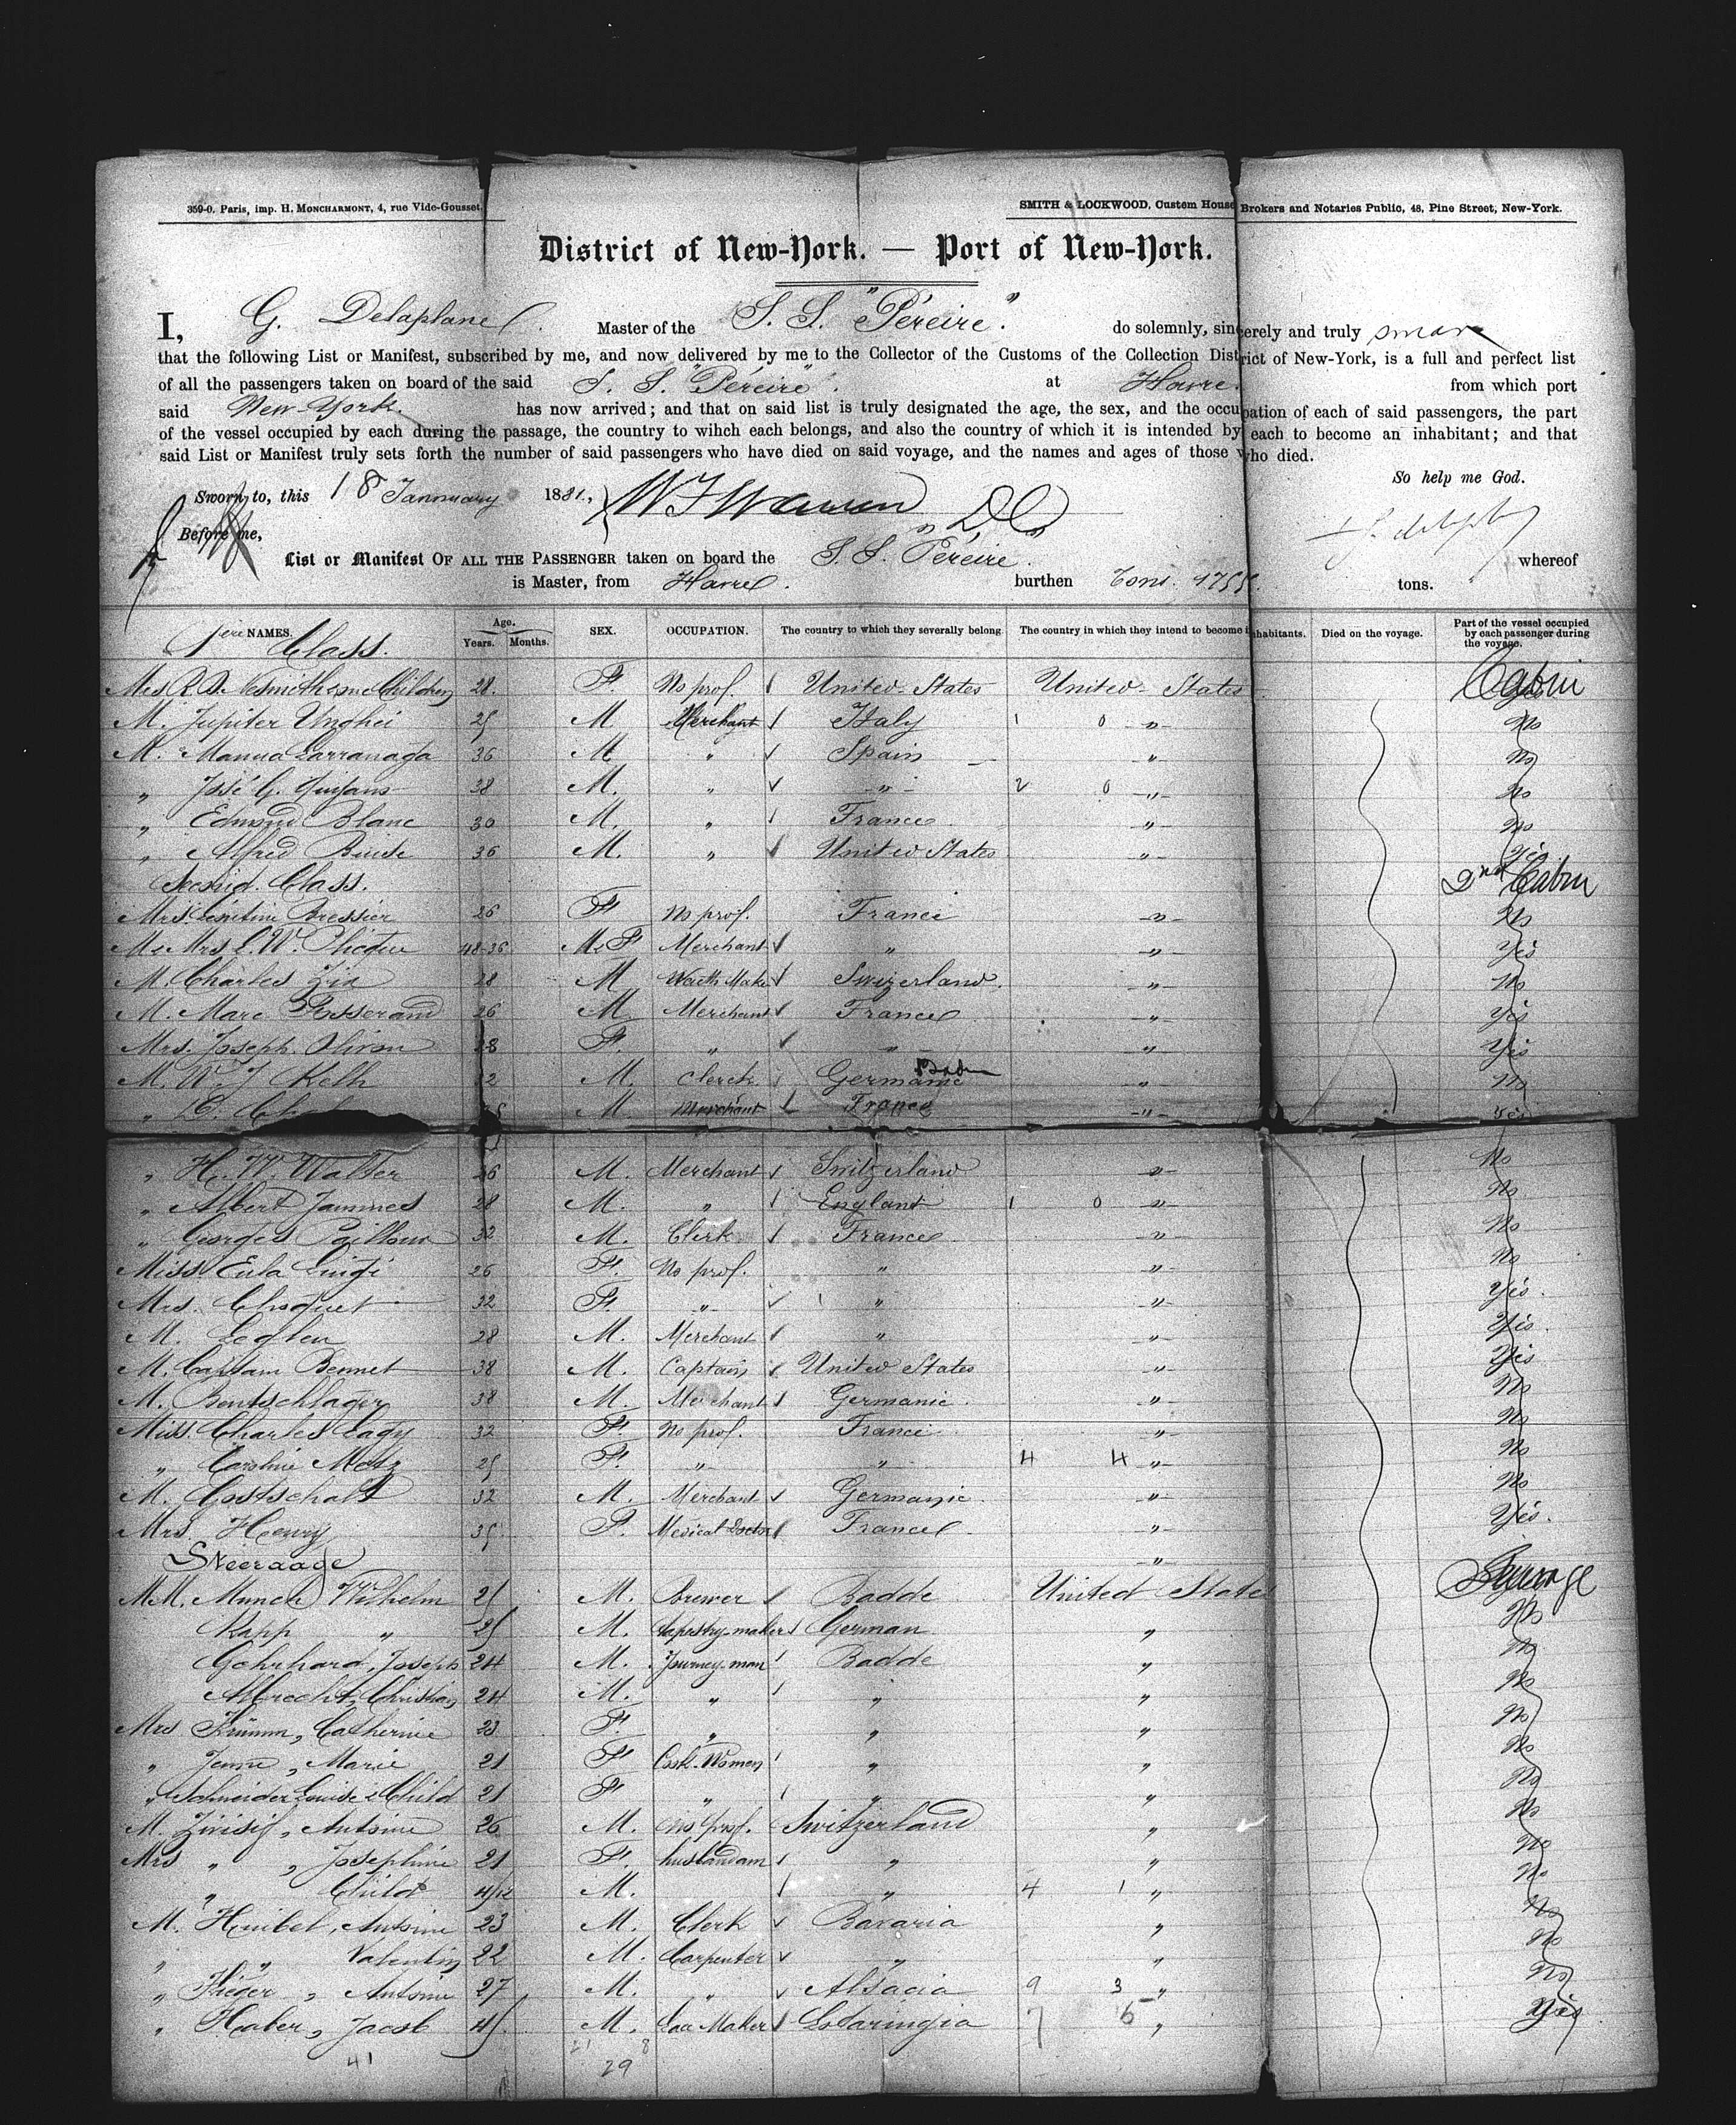 359-0. Paris, imp. H. MONCHARMONT, 4, rue Vide-Gousset.
SMITH & LOCKWOOD, Custom House Brokers and Notaries Public, 48, Pine Street, New-York.
District of New-York. — Port of New-York.
I, G. Delaplane Master of the S. S. "Péreire". do solemnly, sincerely and truly swear
that the following List or Manifest, subscribed by me, and now delivered by me to the Collector of the Customs of the Collection District of New-York, is a full and perfect list
of all the passengers taken on board of the said S. S. "Péreire". at Havre. from which port
said New-York. has now arrived; and that on said list is truly designated the age, the sex, and the occupation of each of said passengers, the part
of the vessel occupied by each during the passage, the country to wihch each belongs, and also the country of which it is intended by each to become an inhabitant; and that
said List or Manifest truly sets forth the number of said passengers who have died on said voyage, and the names and ages of those who died.
So help me God.
Sworn to, this 18 January 1881,
Before me,
List or Manifest OF ALL THE PASSENGER taken on board the S. S. "Péreire". whereof
is Master, from Havre. burthen Tons. tons.
NAMES. Age. Years. Months. SEX. OCCUPATION. The country to which they severally belong The country in which they intend to become inhabitants. Died on the voyage. Part of the vessel occupied by each passenger during the voyage.
1ere Class. Cabin
Mrs 28. F. No prof. United-States United-States
M. Jupiter Unghei 25 M Merchant Italy 1 0 " No
M. Larranaga 36 M " Spain " No
" José G. 38 M. " " 2 0 " No
" Edmond Blanc 30 M. " France " No
" Alfred 36 M. " United States " Yes
Second. Class. 2nd Cabin
Mrs Bressier 26 F No prof. France " No
M & Mrs E. W. 48-36 M & F Merchant " " Yes
M. Charles 28 M Swizerland. " No
M. Marc 26 M Merchant France " Yes
Mrs. Joseph. 28 F. " " " Yes
M. W. J. Kelh 32 M. Clerck Germanie Baden " No
" M Merchant France " Yes
" H. W. Walter 26 M. Merchant Snitzerland " No
" Albert Jammes 28 M. " England 1 0 " No
" Georges 32 M. Clerk France " No
Miss. Luigi 26 F. No prof. " " No
Mrs. Choquet 32 F. " " " Yes.
M. 28 M. Merchant " " Yes.
M. Captain Bennet 38 M. Captain United States " Yes
M. Bentschlager 38 M. Merchant Germanie. " No
Miss. Charles 32 F. No prof. France " No
" Caroline Metz 25 F. " " 4 4 " No
M. Gostschalt 32 M. Merchant Germanie. " No
Mrs. Henry 35 F. Medical Doctor France " Yes.
Steeraage " Steerage
MM. Munch Wilhelm 25 M. Brewer Badde United States
Kapp " 25 M. tapestry-maker German " No
Gehrhard, Joseph 24 M. Journey-man Badde " No
Albrecht, Christian 24 M. " " " No
Mrs Krumm, Catherine 23 F. " " " No
" , Marie 21 F Cook-Women " " No
" Schneider Louise & Child 21 F " " " No
M. , Antoine 26 M. No prof. Switzerland " No
Mrs " , Josephine 21 F. husbandam " " No
" Child 4/12 M. " 4 1 " No
M. Huibel, Antoine 23 M. Clerk Bavaria " No
" " Valentin 22 M. Carpenter " " No
" , Antoine 27 M. " Alsacia 9 3 " No
" Haber, Jacob 45 M. Lotaringia 7 6 " Yes
41 21 8
29